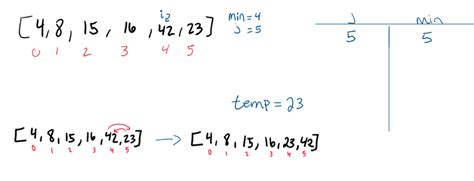 i₂
[4, 8, 15, 16, 42, 23]
0 1 2 3 4 5
min=4
j=5
j min
5 5
temp = 23
[4, 8, 15, 16, 42, 23] → [4, 8, 15, 16, 23, 42]
0 1 2 3 4 5 0 1 2 3 4 5